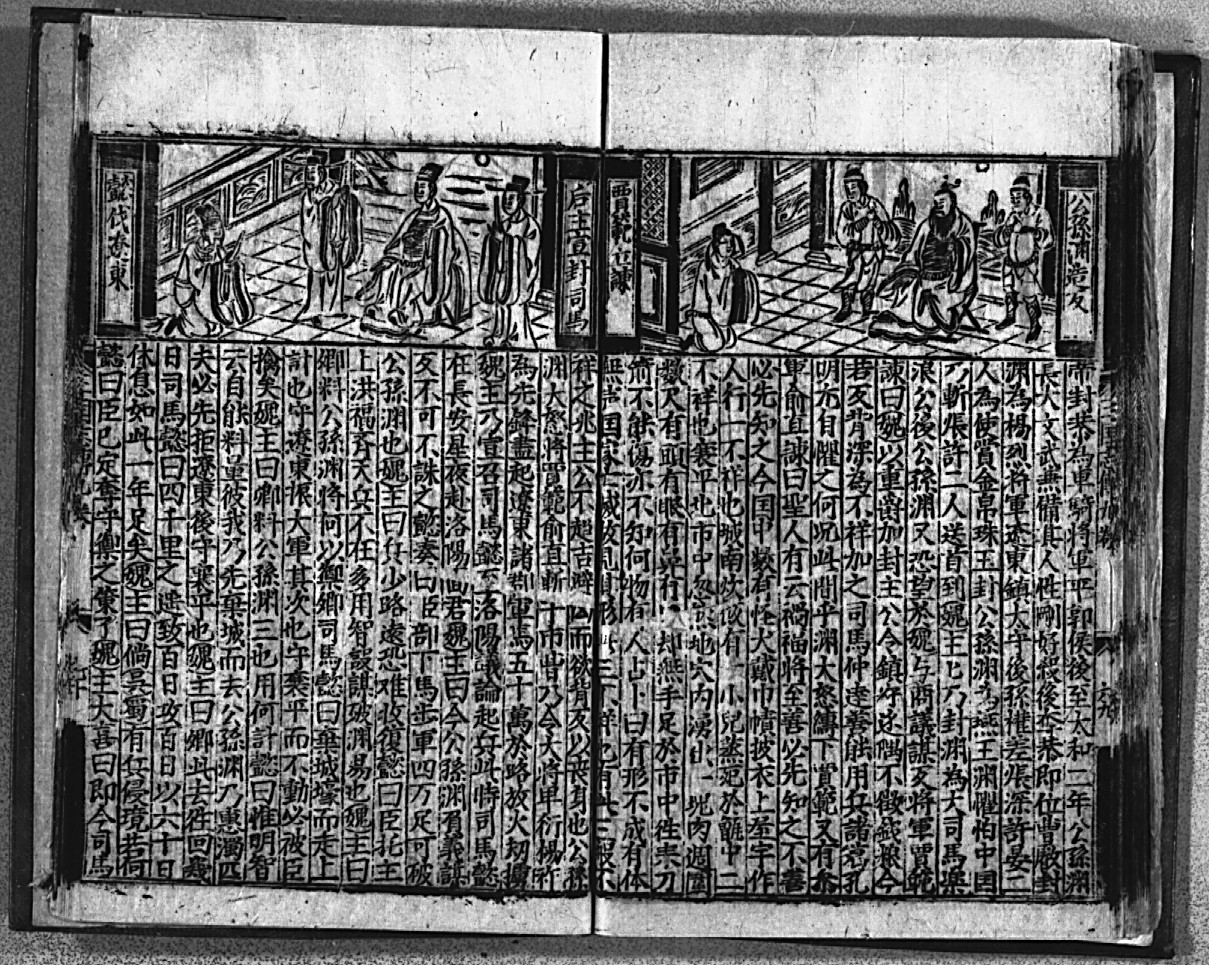 公孫淵造反
賈範苦諫
帝封恭為車騎將軍平郭侯後至太和二年公孫淵
長大文武兼備其人性剛好殺後奪恭即位曹叡封
淵為楊烈將軍遼東鎮太守後孫權差張深許晏二
人為使賫金帛珠玉封公孫淵為燕王淵懼怕中国
乃斬張許二人送首到魏王乃封淵為大司馬樂
浪公後公孫淵又恐望於魏与商議謀反將軍賈範
諫曰魏以重爵加封主公今鎮守边隅不徵錢粮今
若反背深為不祥加之司馬仲達善能用兵諸葛孔
明尤自懼之何况此間乎淵大怒縛下賈範又有參
軍俞直諫曰聖人有云禍福將至善必先知之不善
必先知之今国中数有怪犬戴巾幘披衣上屋字作
人行一不祥也城南炊飯有一小兒蒸死於甑中二
不祥也襄平北市中忽於地穴内湧出一塊肉週圍
数尺有頭有眼有耳有口却無手足於市中徃来刀
箭不能傷亦不知何物有人占卜曰有形不成有体
無声国家亡滅故見其形此三不祥也有此三般不
祥之兆主公不趋吉避凶而欲背反以喪身也公孫
淵大怒將賈範俞直斬于市曹乃令大將卑衍楊祚
為先鋒盡起遼東諸郡軍馬五十萬於路放火刼擄
魏王乃宣召司馬懿至洛陽議論起兵此時司馬懿
在長安星夜赴洛陽面君魏王曰今公孫淵有義謀
反不可不誅之懿奏曰臣部下馬步軍四万足可破
公孫淵也魏王曰兵少路遠恐难收復懿曰臣托主
上洪福齊天兵不在多用智設謀破淵易也魏王曰
卿料公孫淵將何以禦卿司馬懿曰棄城壕而走上
計也守遼東振大軍其次也守襄平而不動必被臣
擒矣魏王曰卿料公孫淵三也用何計懿曰惟明智
云自能料量彼我乃先棄城而去公孫淵乃愚濁匹
夫必先拒遼東後守襄平也魏主曰卿此去徃回幾
日司馬懿曰四千里之遥致百日攻百日以六十日
休息如此一年足矣魏主曰倘吳蜀有兵侵境若何
懿曰臣已定奪守禦之策了魏主大喜曰即令司馬
后主宣封司馬
懿伐遼東